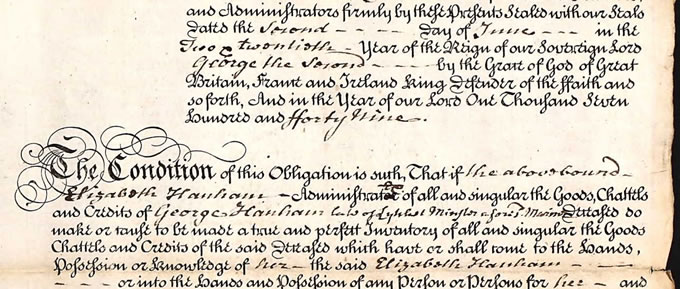 and Administrators firmly by these Presents Sealed with our Seals
Dated the Second - - - - Day of June - - - in the
Two & twentieth - Year of the Reign of our Sovereign Lord
George the Second - - - - by the Grace of God of Great
Britain, France and Ireland King Defender of the Ffaith and
so forth, And in the Year of our Lord One Thousand Seven
Hundred and fforty Nine.
The Condition of this Obligation is such, That if the above bound -
Elizabeth Hanham - Administratrix of all and singular the Goods, Chattels
and Credits of George Hanham late of Lytchet Minster a foresd. Deceased do
make or cause to be made a true and perfect Inventory of all and singular the Goods
Chattels and Credits of the said Deceased which have or shall come to the Hands,
Possession or Knowledge of her - the said Elizabeth Hanham - - -
- - - - or into the Hands and Possession of any Person or Persons for her - and